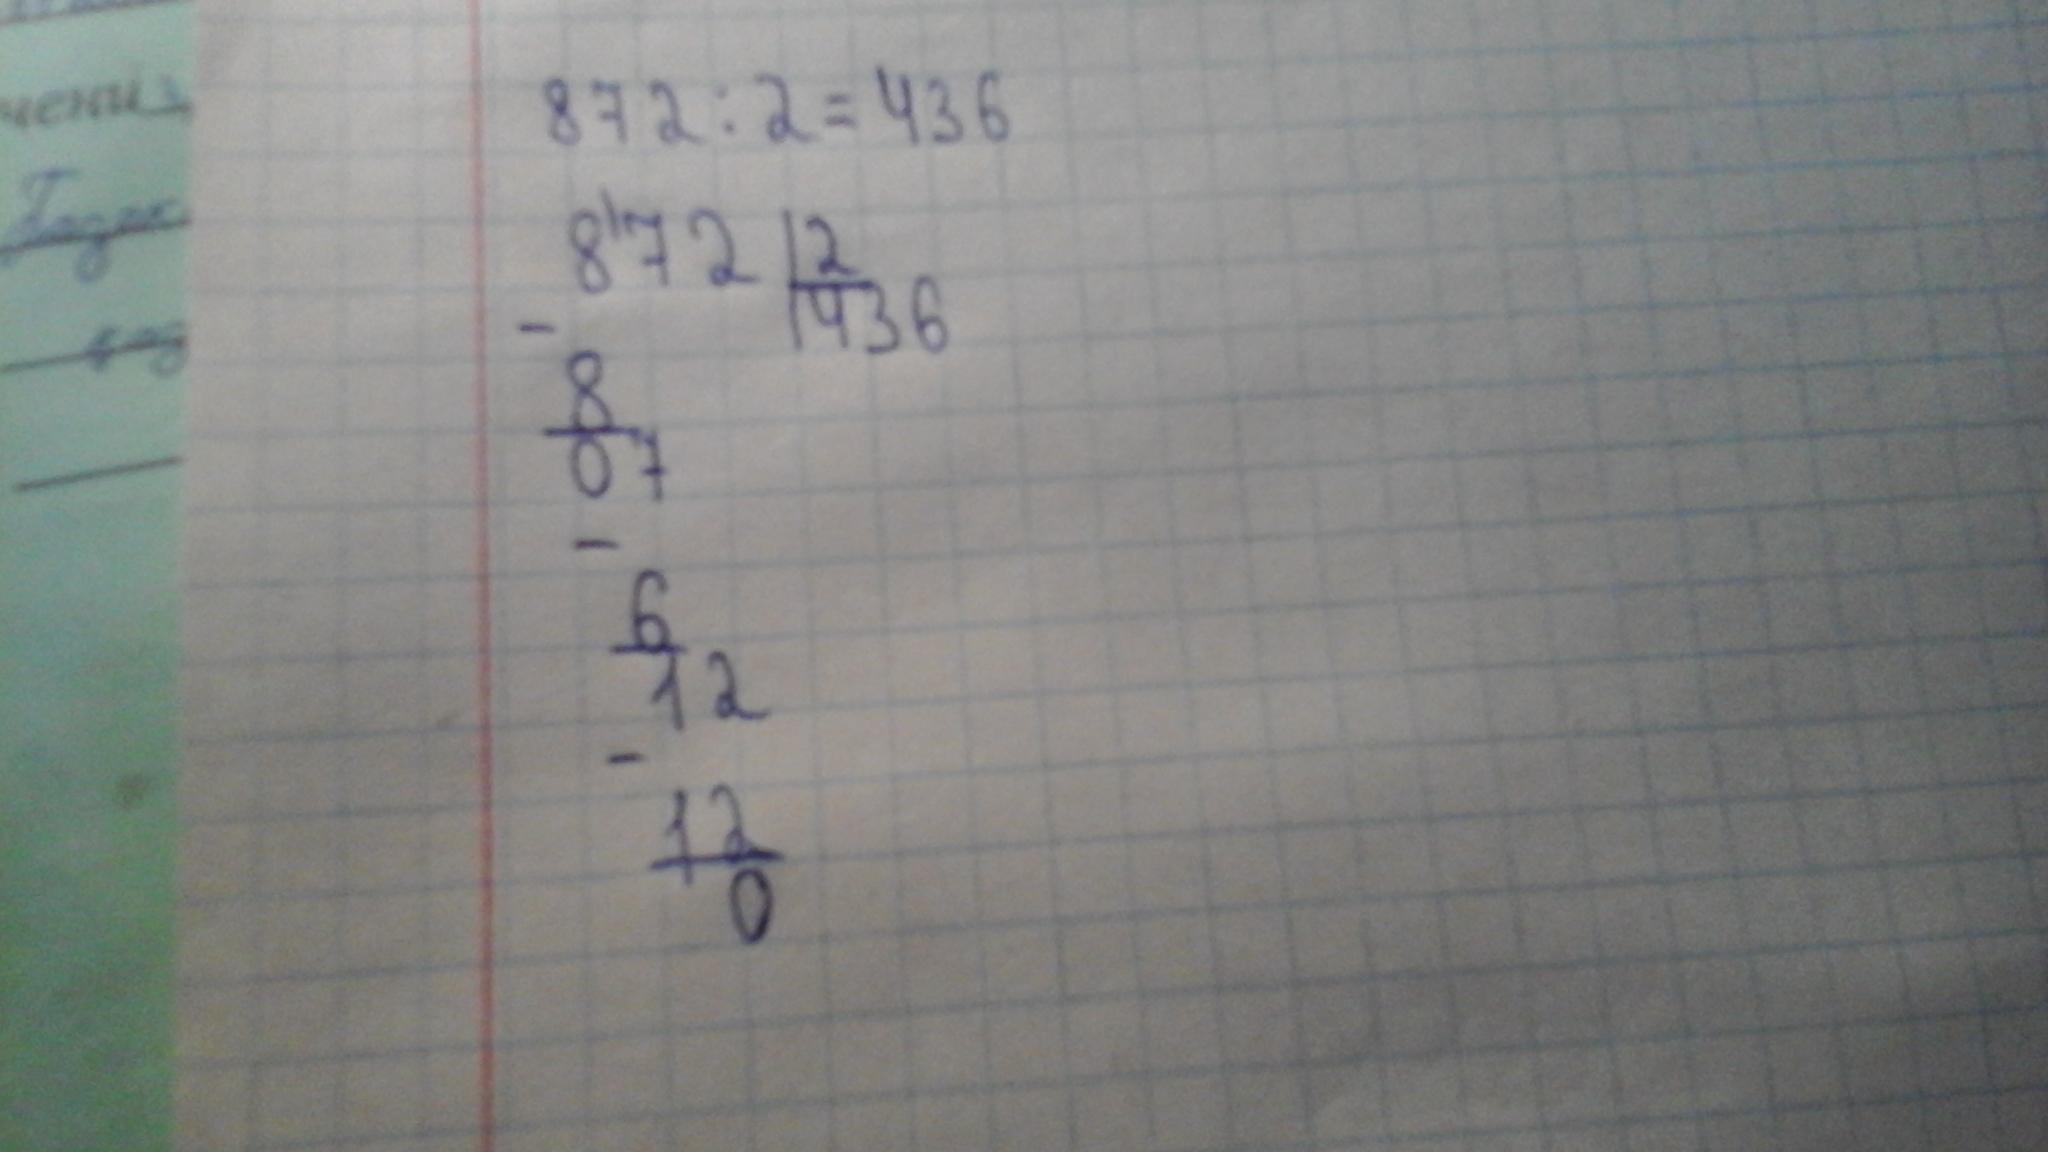 чени
872:2=436
8'72 2
- 436
8
07
-
6
12
-
12
0